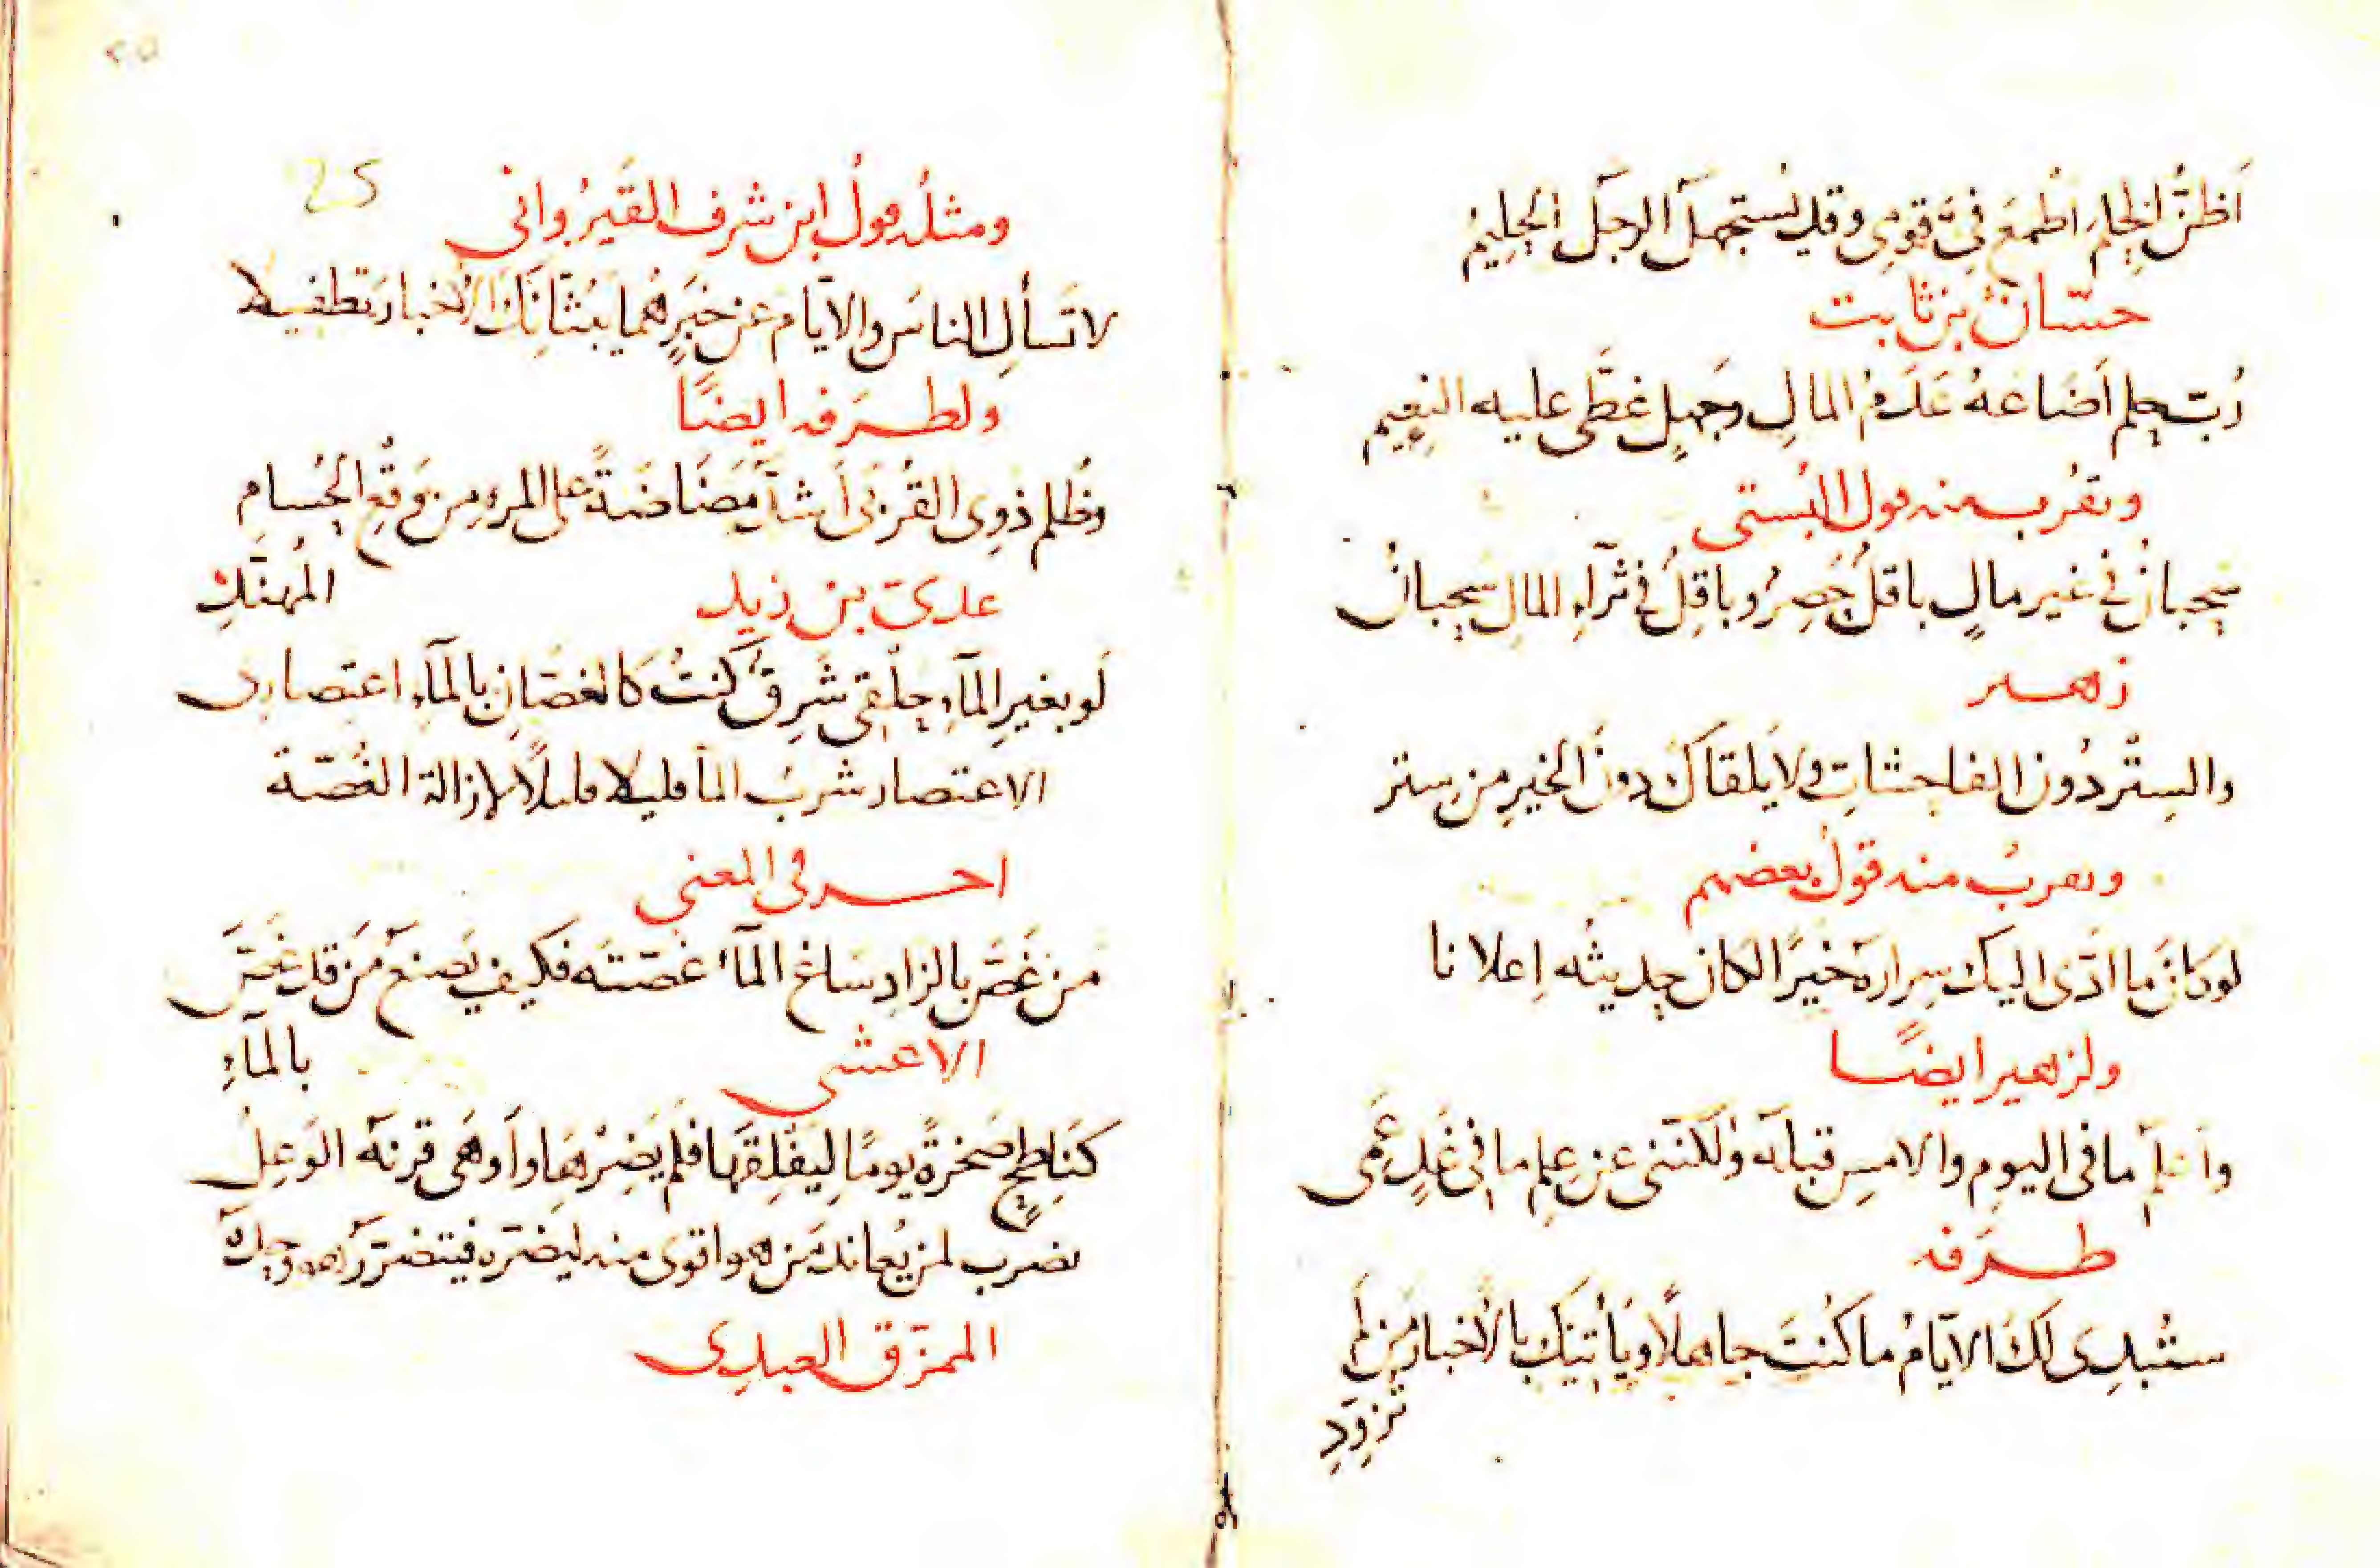 أظنّ الحلم أطمعَ فيَّ قومي وقد يُستجهل الرجل الحليمُ
حسّان بن ثابت
رُبّ حلم أضاعهُ عَدَمُ المالِ وجَهلٍ غطّى عليه النعيم
ويقرُب منه قول البُستي
سحبانُ في غير مالٍ باقلٌ حَصِرٌ وباقِلٌ في ثرآءِ المال سحبانُ
زهير
والسِترُ دُون الفاحشاتِ ولا يَلقاكَ دونَ الخيرِ من ستر
ويقربُ منه قولُ بعضهم
لو كانَ ما ادّى اليك سِراره خيرًا لكان حديثه إعلانا
ولزهير ايضًا
وأعلم ما في اليوم والامسِ قبله ولكنّني عن علمِ ما في غَدٍ عَمِى
طَرَفه
ستُبدِى لكَ الايّامُ ما كُنتَ جاهلًا ويأتيك بالأخبار مَن لم
تزوّدِ
٢٥
25
ومثلُه قولُ ابن شرف القَيرُواني
لا تَسألِ الناسَ والايّام عن خبَرٍ هُما يَبُثّانِكَ الأخبار تطفيلا
ولطرَفه ايضًا
وظُلم ذوِى القُربَى أشدّ مَضَاضَةً على المرءِ مِن وَقعِ الحُسامِ
المُهنّدِ
عدىّ بن زيد
لَو بغيرِ المآءِ حلقى شَرِقٌ كنتُ كالغصّانِ بالمآءِ اعتصارى
الاعتصار شربُ المآ قليلا قليلًا لإزالة الغُصّة
آخر في المعنى
مَن غَصّ بالزادِ سَاغ المآءُ غصّتَه فكيف يَصنع مَن قد غَصَّ
بالمآءِ
الاعشى
كنَاطحٍ صَخرةً يومًا ليَفلِقَها فلَم يَضِرْهَا وأوهَى قرنَه الوَعِلُ
يضرب لمن يُعاند مَن هو اقوى منه ليضرّه فيتضرّر هو وحده
الممزّق العبدِى